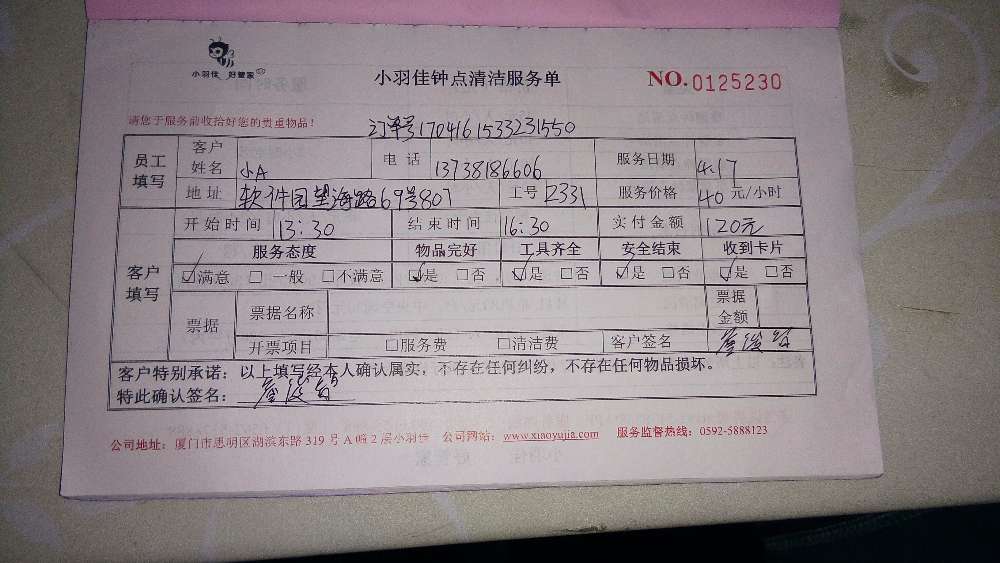 小羽佳 好管家
小羽佳钟点清洁服务单
NO.0125230
请您于服务前收拾好您的贵重物品!
订单号170416153323 1550
员工填写 客户姓名 小A 电话 13738186606 服务日期 4.17
地址 软件园望海路69号807 工号 2331 服务价格 40元/小时
客户填写 开始时间 13:30 结束时间 16:30 实付金额 120元
服务态度 物品完好 工具齐全 安全结束 收到卡片
☑满意 □一般 □不满意 ☑是 □否 ☑是 □否 ☑是 □否 ☑是 □否
票据 票据名称 票据金额
开票项目 □服务费 □清洁费 客户签名
客户特别承诺:以上填写经本人确认属实,不存在任何纠纷,不存在任何物品损坏。
特此确认签名:
公司地址:厦门市思明区湖滨东路319号A幢2层小羽佳 公司网站:www.xiaoyujia.com 服务监督热线:0592-5888123